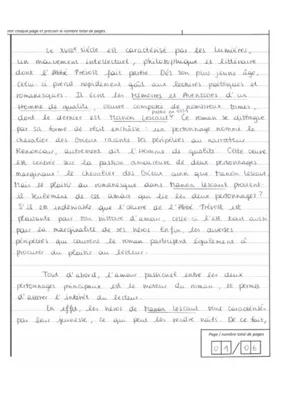 Le XVIIIe siècle est caractérisé par les Lumières,
un mouvement intellectuel, philosophique et littéraire
dont l'Abbé Prévost fait partie. Dès son plus jeune âge,
celui-ci prend rapidement goût aux lectures poétiques et
romanesques. Il écrit les Mémoires et Aventures d'un
Homme de qualité, œuvre composée de nombreux tomes,
dont le dernier est Manon Lescaut. Ce roman se distingue
par sa forme de récit enchâssé : un personnage nommé le
chevalier des Grieux raconte ses péripéties au narrateur
Renoncour, autrement dit l'Homme de qualité. Cette œuvre
est centrée sur la passion amoureuse de deux personnages
marginaux : le chevalier des Grieux ainsi que Manon Lescaut.
Mais le plaisir du romanesque dans Manon Lescaut provient-
il seulement de cet amour qui lie les deux personnages ?
S'il est indéniable que l'œuvre de l'Abbé Prévost est
plaisante pour son histoire d'amour, celle-ci l'est tout aussi
pour sa marginalité de ses héros. Enfin, les diverses
péripéties qui couvrent le roman participent également à
procurer du plaisir au lecteur.
Tout d'abord, l'amour passionnel entre les deux
personnages principaux est le moteur du roman, et permet
d'attirer l'intérêt du lecteur.
En effet, les héros de Manon Lescaut sont caractérisés
par leur jeunesse, ce qui peut les rendre naïfs. De ce fait,
Page / nombre total de pages
01 / 06